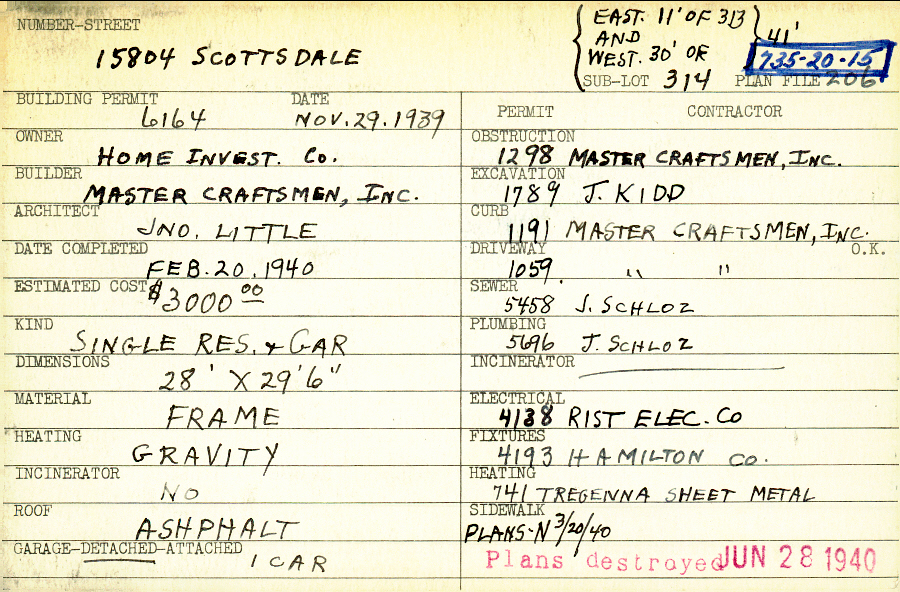 NUMBER-STREET
15804 SCOTTSDALE
EAST. 11' OF 313
AND
WEST. 30' OF
SUB-LOT 314
41'
735-20-15
PLAN FILE 206
BUILDING PERMIT DATE
6164 NOV. 29. 1939
OWNER
HOME INVEST. Co.
BUILDER
MASTER CRAFTSMEN, INC.
ARCHITECT
JNO. LITTLE
DATE COMPLETED
FEB. 20, 1940
ESTIMATED COST $3000 00
KIND
SINGLE RES. & GAR
DIMENSIONS
28' X 29'6"
MATERIAL
FRAME
HEATING
GRAVITY
INCINERATOR
NO
ROOF
ASHPHALT
GARAGE-DETACHED-ATTACHED
1 CAR
PERMIT CONTRACTOR
OBSTRUCTION
1298 MASTER CRAFTSMEN, INC.
EXCAVATION
1789 J. KIDD
CURB
1191 MASTER CRAFTSMEN, INC.
DRIVEWAY O.K.
1059. " "
SEWER
5458 J. SCHLOZ
PLUMBING
5696 J. SCHLOZ
INCINERATOR
ELECTRICAL
4138 RIST ELEC. CO
FIXTURES
4193 HAMILTON CO.
HEATING
741 TREGENNA SHEET METAL
SIDEWALK
PLANS-N 3/20/40
Plans destroyed JUN 28 1940